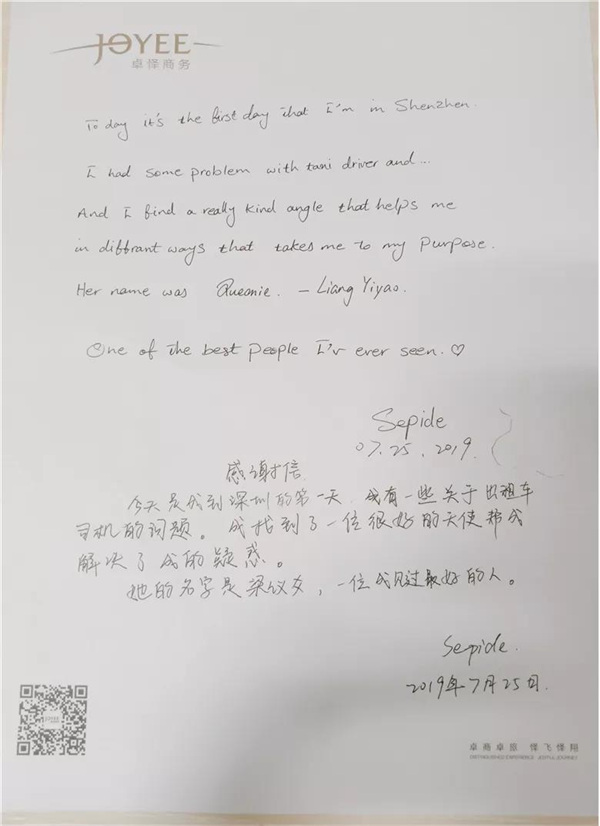 JOYEE
卓怿商务
Today it's the first day that I'm in Shenzhen.
I had some problem with taxi driver and...
And I find a really kind angle that helps me
in diffrant ways that takes me to my purpose.
Her name was Queenie. - Liang Yiyao.
One of the best people I'v ever seen. ♡
Sepide
07.25.2019
感谢信
今天是我到深圳的第一天, 我有一些关于出租车
司机的问题。我找到了一位很好的天使帮我
解决了我的疑惑。
她的名字是梁议文, 一位我见过最好的人。
Sepide.
2019年7月25日.
卓商卓旅 怿飞怿翔
DISTINGUISHED EXPERIENCE JOYFUL JOURNEY